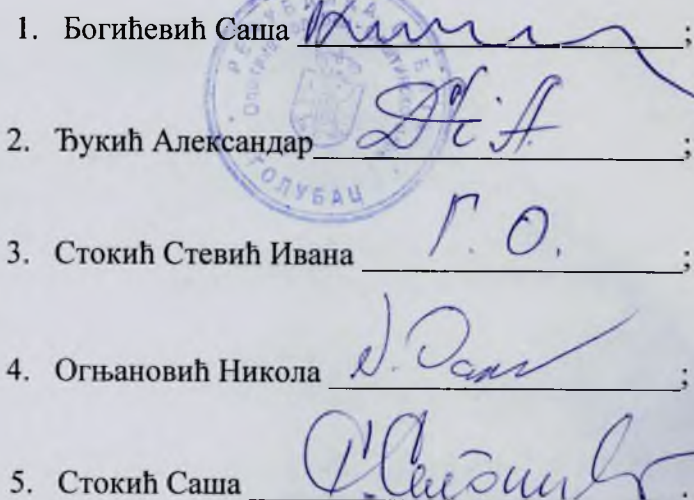 1. Богићевић Саша ;
2. Ђукић Александар ;
3. Стокић Стевић Ивана Г. О. ;
4. Огњановић Никола ;
5. Стокић Саша
ГОЛУБАЦ